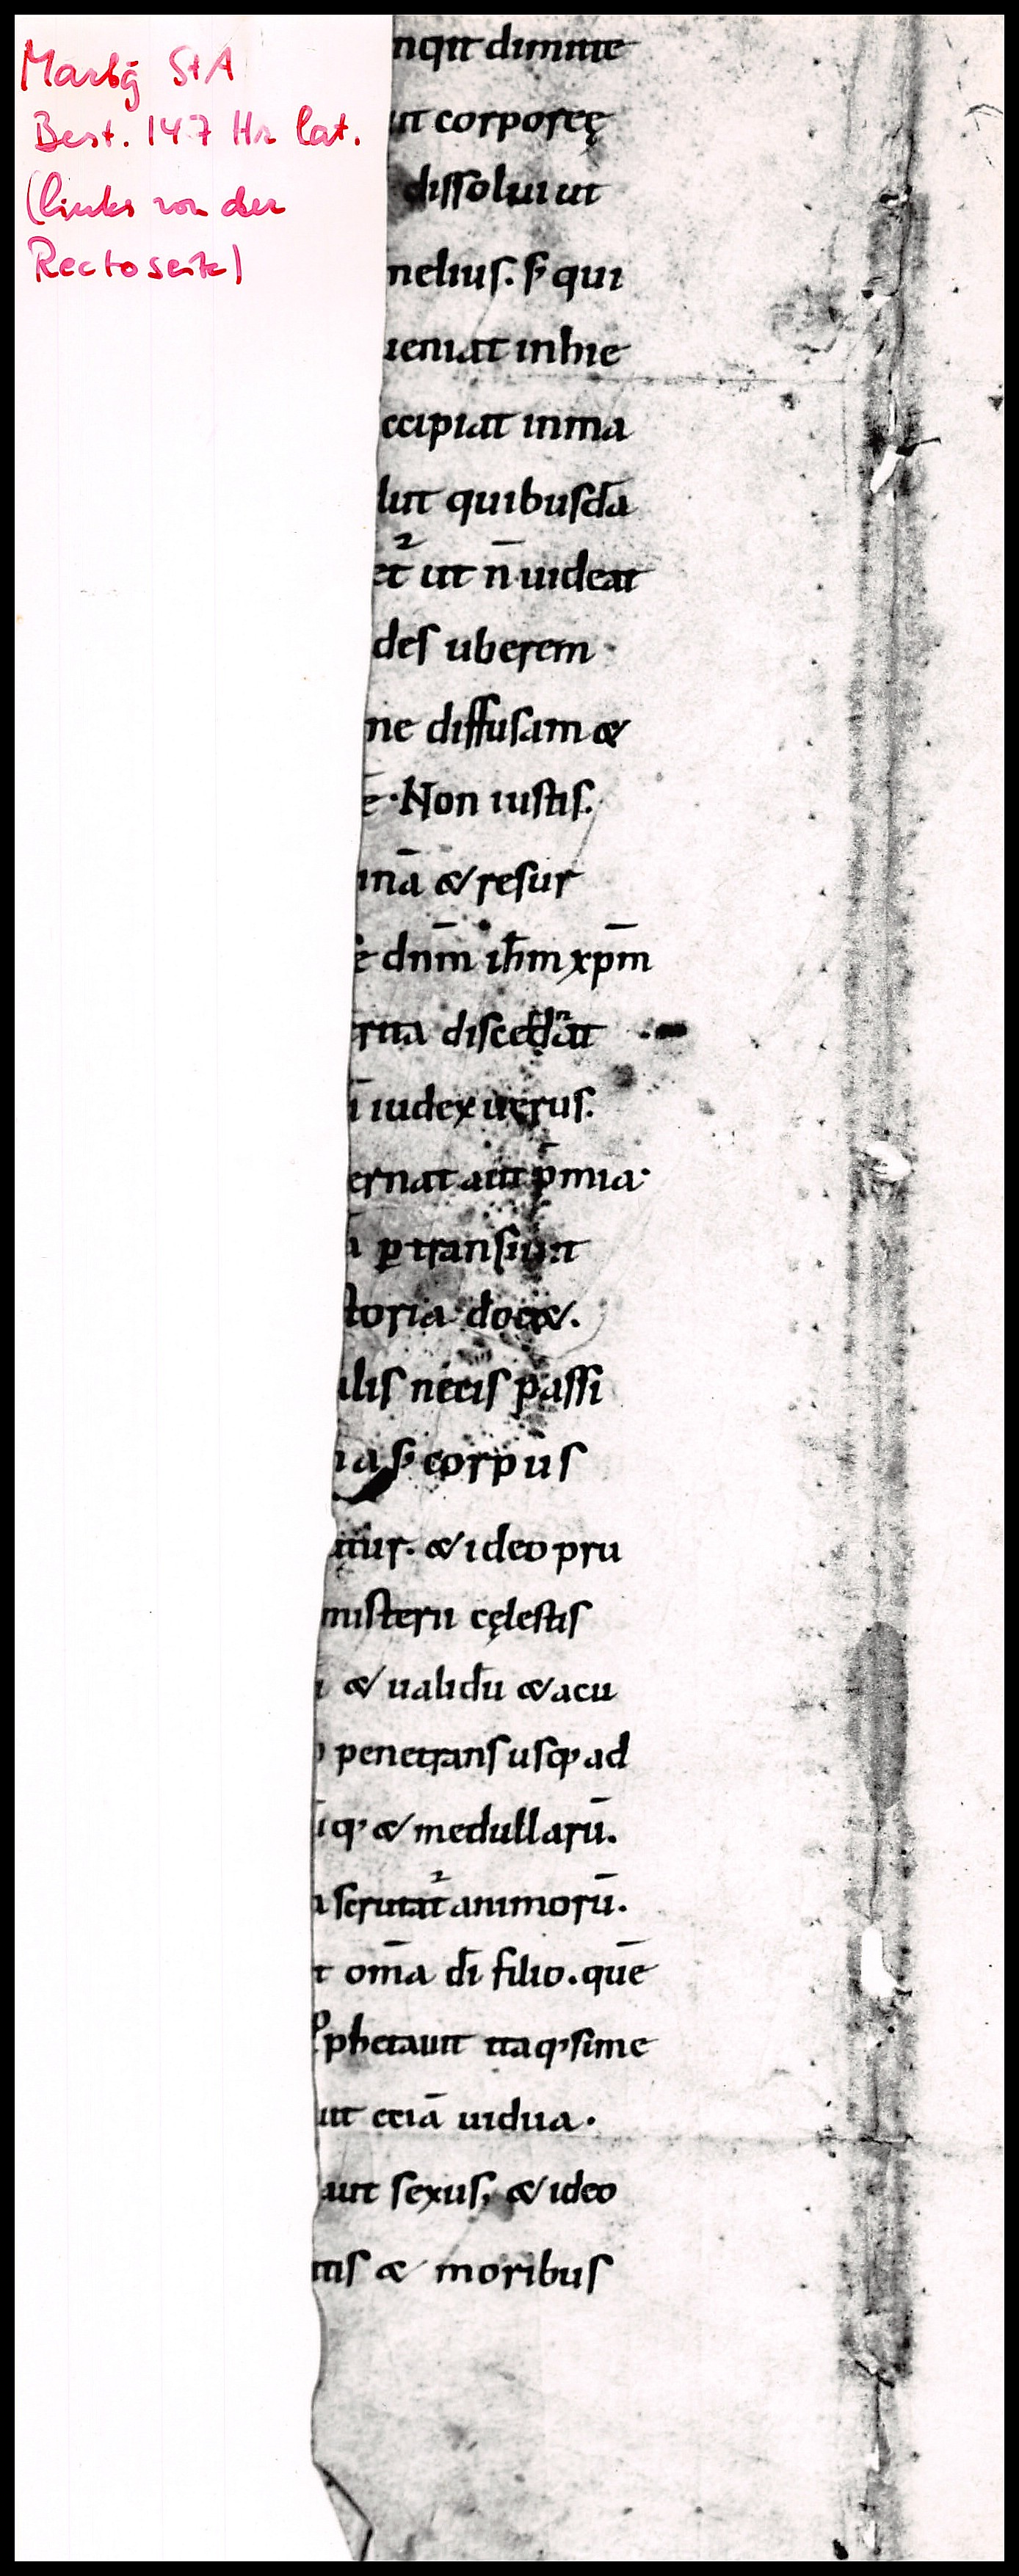 Marbg StA
Best. 147 Hr lat.
(links von der
Rectoseite)
nqit dimitte
ut corporeę
dissolui ut
nelius. s; qui
ueniat in hie
ccipiat in ma
lut quibusdā
et᷑ ut n̄ uideat
des uberem
ne diffusam &
ē. Non iustis.
inā & resur
ē dnm̄ ihm̄ xpm̄
discedat
ī iudex uerus.
ernat aut p̄mia.
ā ꝑtransiuit
storia docet.
alis necis passi
na s; corpus
itur. & ideo pru
misterii cęlestis
& ualidū & acu
penetrans usq; ad
īq; & medullarū.
a scrutat᷑ animorū.
t om̄a dī filio. quē
ꝓphetauit itaq; sime
ut etiā uidua.
aut sexus, & ideo
tis & moribus